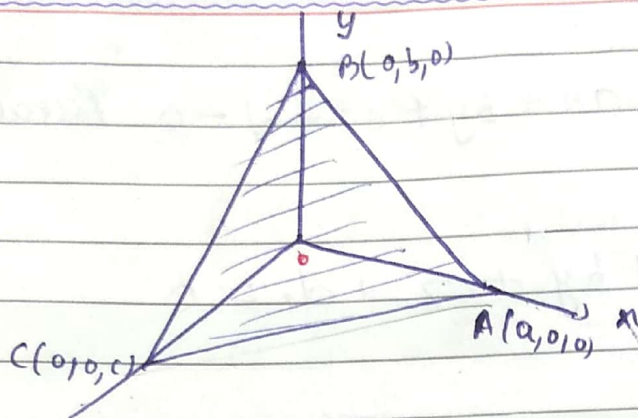 y
B(0,b,0)
O
A(a,0,0)
x
C(0,0,c)